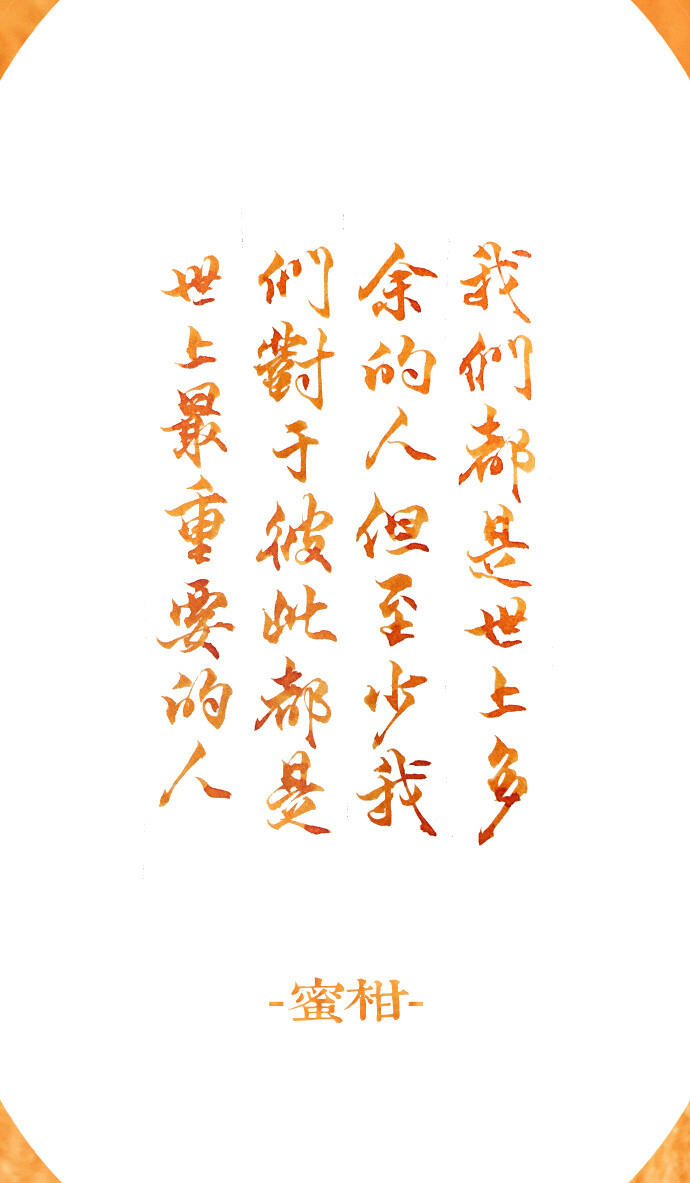 我們都是世上多
余的人但至少我
們對于彼此都是
世上最重要的人
-蜜柑-